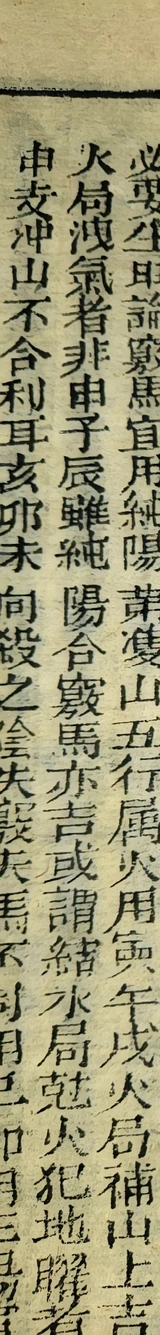 必要生旺論竅馬宜用純陽苐雙山五行属火用寅午戌火局補山上吉
火局洩氣者非申子辰雖純陽合竅馬亦吉或謂結水局尅火犯地曜者
申支冲山不合利耳亥卯未向殺之陰失竅失馬不利用